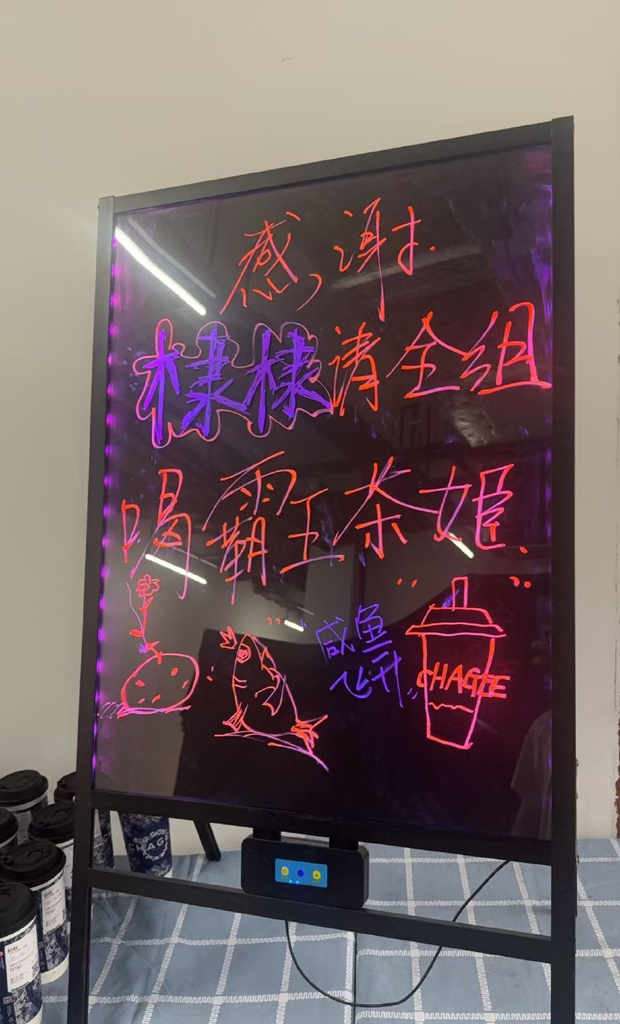 感谢
棣棣请全组
喝霸王茶姬
咸鱼
飞升
CHAGEE
CHAGEE